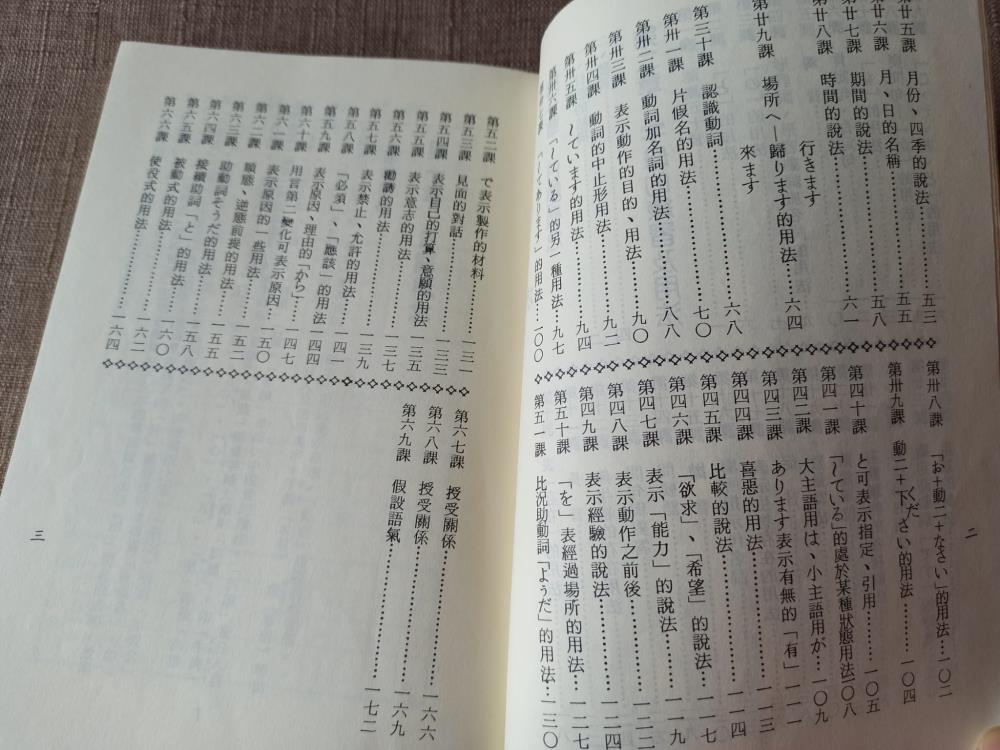 第廿五課 月份、四季的說法……五三
第廿六課 月、日的名稱……五五
第廿七課 期間的說法……五八
第廿八課 時間的說法……六一
行きます
第廿九課 場所へ─歸ります的用法……六四
來ます
第三十課 認識動詞……六八
第卅一課 片假名的用法……七〇
第卅二課 動詞加名詞的用法……八八
第卅三課 表示動作的目的、用法……九〇
第卅四課 動詞的中止形用法……九二
第卅五課 〜ています的用法……九四
第卅六課 「〜ている」的另一種用法…九七
第卅七課 「〜てあります」的用法…一〇〇
第卅八課 「お+動二+なさい」的用法……一〇二
第卅九課 動二+下さい的用法……一〇四
くだ
第四十課 と可表示指定、引用……一〇五
第四一課 「〜ている」的處於某種狀態用法一〇八
第四二課 大主語用は、小主語用が…一〇九
第四三課 あります表示有無的「有」一一一
第四四課 喜惡的用法……一一三
第四五課 比較的說法……一一四
第四六課 「欲求」、「希望」的說法…一一七
第四七課 表示「能力」的說法……一一九
第四八課 表示動作之前後……一二二
第四九課 表示經驗的說法……一二四
第五十課 「を」表經過場所的用法…一二七
第五一課 比況助動詞「ようだ」的用法…一三〇
二
第五二課 で表示製作的材料……一三一
第五三課 見面的對話……一三三
第五四課 表示自己的打算、意願的用法
第五五課 表示意志的用法……一三五
第五六課 勸誘的用法……一三七
第五七課 表示禁止、允許的用法……一三九
第五八課 「必須」、「應該」的用法一四一
第五九課 表示原因、理由的「から」…一四四
第六十課 用言第二變化可表示原因…一四七
第六一課 表示原因的一些用法……一五〇
第六二課 順態、逆態前提的用法……一五二
第六三課 助動詞そうだ的用法……一五五
第六四課 接續助詞「と」的用法……一五八
第六五課 被動式的用法……一六〇
第六六課 使役式的用法……一六四
第六七課 授受關係……一六六
第六八課 授受關係……一六九
第六九課 假設語氣……一七二
三